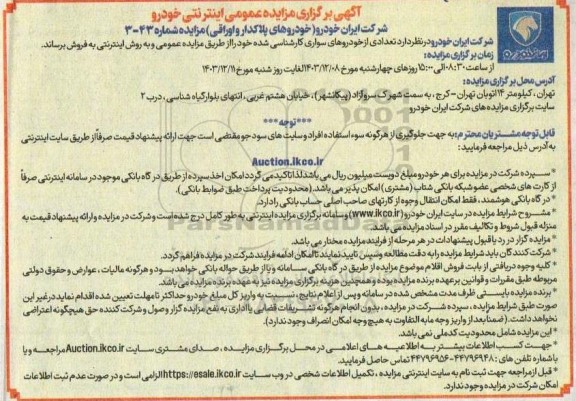 آگهی برگزاری مزایده عمومی اینترنتی خودرو
شرکت ایران خودرو (خودروهای پلاکدار و اوراقی) مزایده شماره ۴۳-۳
شرکت ایران خودرو در نظر دارد تعدادی از خودروهای سواری کارشناسی شده خود را از طریق مزایده عمومی و به روش اینترنتی به فروش برساند.
زمان برگزاری مزایده:
از ساعت ۰۸:۳۰ الی ۱۵:۰۰ روزهای چهارشنبه مورخ ۱۴۰۳/۱۲/۰۸ لغایت روز شنبه مورخ ۱۴۰۳/۱۲/۱۱
آدرس محل برگزاری مزایده:
تهران، کیلومتر ۱۴ اتوبان تهران - کرج، به سمت شهرک سروآزاد (پیکانشهر)، خیابان هشتم غربی، انتهای بلوار گیاه شناسی، درب ۲
سایت برگزاری مزایده های شرکت ایران خودرو
***توجه***
قابل توجه مشتریان محترم: به جهت جلوگیری از هرگونه سوء استفاده افراد و سایت های سودجو مقتضی است جهت ارائه پیشنهاد قیمت صرفاً از طریق سایت اینترنتی
به آدرس ذیل مراجعه فرمایید:
Auction.ikco.ir
* سپرده شرکت در مزایده برای هر خودرو مبلغ دویست میلیون ریال می باشد لذا تاکید می گردد امکان اخذ سپرده از طریق درگاه بانکی موجود در سامانه اینترنتی صرفاً
از کارت های شخصی عضو شبکه بانکی شتاب (مشتری) امکان پذیر می باشد. (محدودیت پرداخت طبق ضوابط بانکی).
* در گاه بانکی هوشمند، فقط امکان انتقال وجوه از کارتهای صاحب اصلی حساب بانکی را دارد.
* مشروح شرایط مزایده در سایت ایران خودرو (www.ikco.ir) و سامانه برگزاری مزایده اینترنتی به طور کامل درج شده است و شرکت در مزایده و ارائه پیشنهاد قیمت به
منزله قبول شروط و تکالیف مقرر در اسناد مزایده می باشد.
* مزایده گزار در رد یا قبول پیشنهادات در هر مرحله از فرایند مزایده مختار می باشد.
* شرکت کنندگان باید شرایط مزایده را به دقت مطالعه و سپس تایید نمایند تا امکان ادامه فرایند شرکت در مزایده فراهم گردد.
* کلیه وجوه دریافتی از بابت فروش اقلام موضوع مزایده از طریق درگاه بانکی سامانه و یا از طریق حواله بانکی خواهد بود و هرگونه مالیات، عوارض و حقوق دولتی
مربوطه طبق مقررات و قوانین بر عهده برنده مزایده بوده و همچنین هزینه برگزاری مزایده نیز به عهده برنده مزایده می باشد.
* برنده مزایده بایستی ظرف مدت مشخص شده در سامانه و پس از اعلام نتایج، نسبت به واریز کل مبلغ خودرو حداکثر تا مهلت تعیین شده اقدام نماید در غیر این
صورت طبق شرایط مزایده، سپرده شرکت در مزایده، بدون انجام هرگونه تشریفات قضایی یا اداری به نفع مزایده گزار وصول و شرکت کننده حق هیچگونه اعتراضی
نخواهد داشت. (ضمنا بعد از واریز وجه مابه التفاوت به هیچ وجه امکان انصراف وجود ندارد)
* این مزایده شامل محدودیت کدملی نمی باشد.
* جهت کسب اطلاعات بیشتر به اطلاعیه های اعلامی در محل برگزاری مزایده، صدای مشتری سایت Auction.ikco.ir مراجعه و یا
با شماره تلفن های: ۴۴۷۹۶۹۴۸-۴۴۷۹۶۹۵۶ تماس حاصل فرمایید.
* قبل از مراجعه جهت ثبت نام به سایت اینترنتی مزایده، تکمیل اطلاعات شخصی در وب سایت https://esale.ikco.ir الزامی است و در صورت عدم ثبت اطلاعات
امکان شرکت در مزایده وجود ندارد.